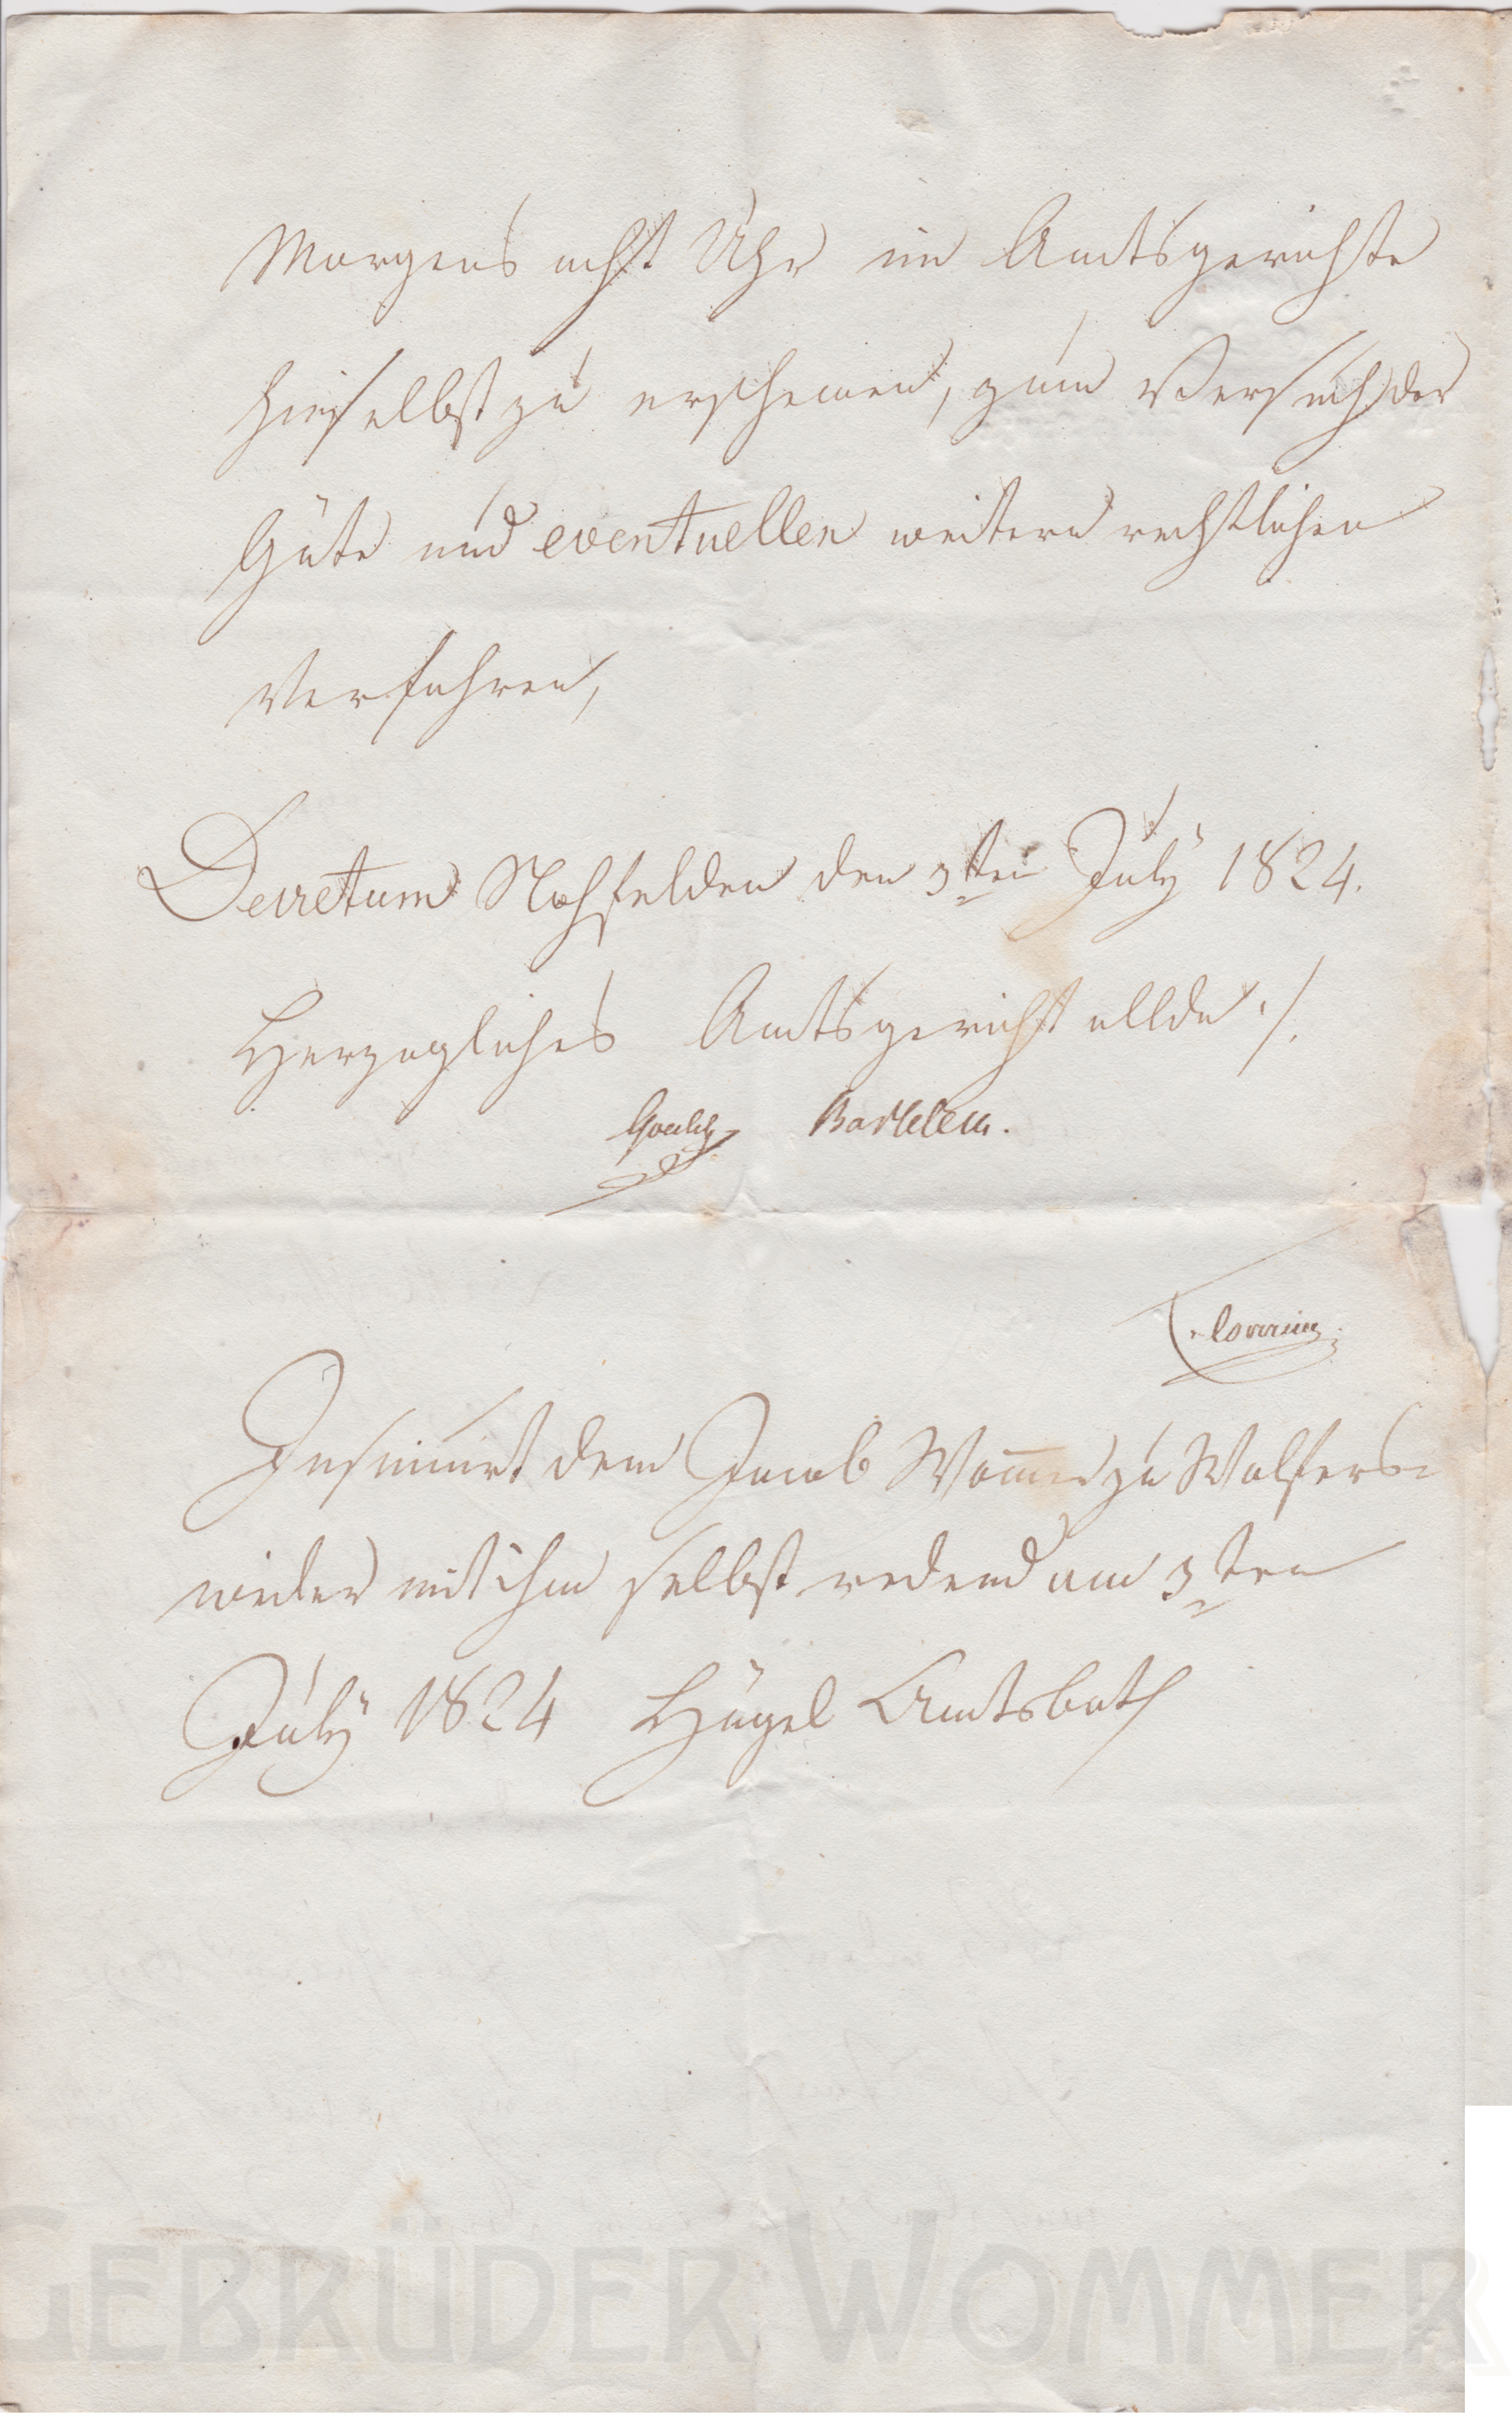 Morgens acht Uhr im Amtsgerichte
hieselbst zu erscheinen, zum Versuch der
Güte und eventuellen weitern rechtlichen
Verfahren,
Decretum Nohfelden den 3ten July 1824.
Herzogliches Amtsgericht allda ./.
Barthelem.
Insinuirt dem Jacob Wom̅er zu Wolfers-
weiler mit ihm selbst redend am 3ten
July 1824 Hügel Amtsboth
GEBRÜDER WOMMER